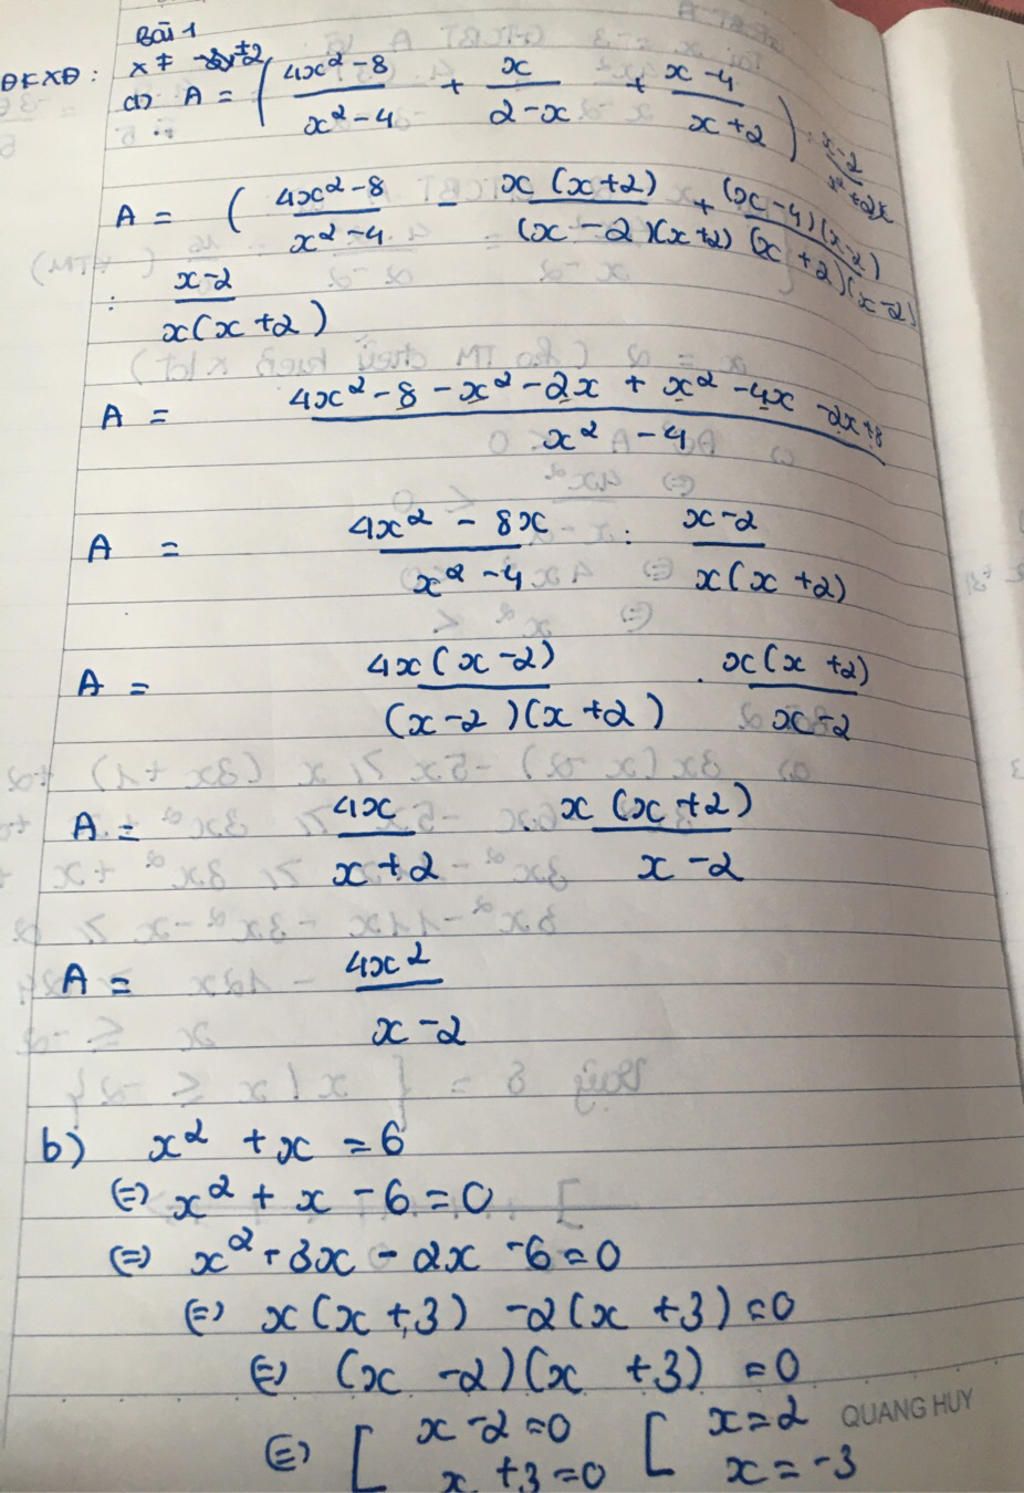 Bài 1
ĐKXĐ: x ≠ ±2
a) A = ( (4x² - 8)/(x² - 4) + x/(2 - x) + (x - 4)/(x + 2) ) : (x - 2)/(x² + 2x)
A = ( (4x² - 8)/(x² - 4) - x(x + 2)/((x - 2)(x + 2)) + (x - 4)(x - 2)/((x + 2)(x - 2))
: (x - 2)/(x(x + 2))
A = (4x² - 8 - x² - 2x + x² - 4x - 2x + 8)/(x² - 4)
A = (4x² - 8x)/(x² - 4) : (x - 2)/(x(x + 2))
A = 4x(x - 2)/((x - 2)(x + 2)) . x(x + 2)/(x - 2)
A = 4x/(x + 2) . x(x + 2)/(x - 2)
A = 4x²/(x - 2)
b) x² + x = 6
(=) x² + x - 6 = 0
(=) x² + 3x - 2x - 6 = 0
(=) x(x + 3) - 2(x + 3) = 0
(=) (x - 2)(x + 3) = 0
(=) [ x - 2 = 0 [ x = 2
x + 3 = 0 x = -3
QUANG HUY